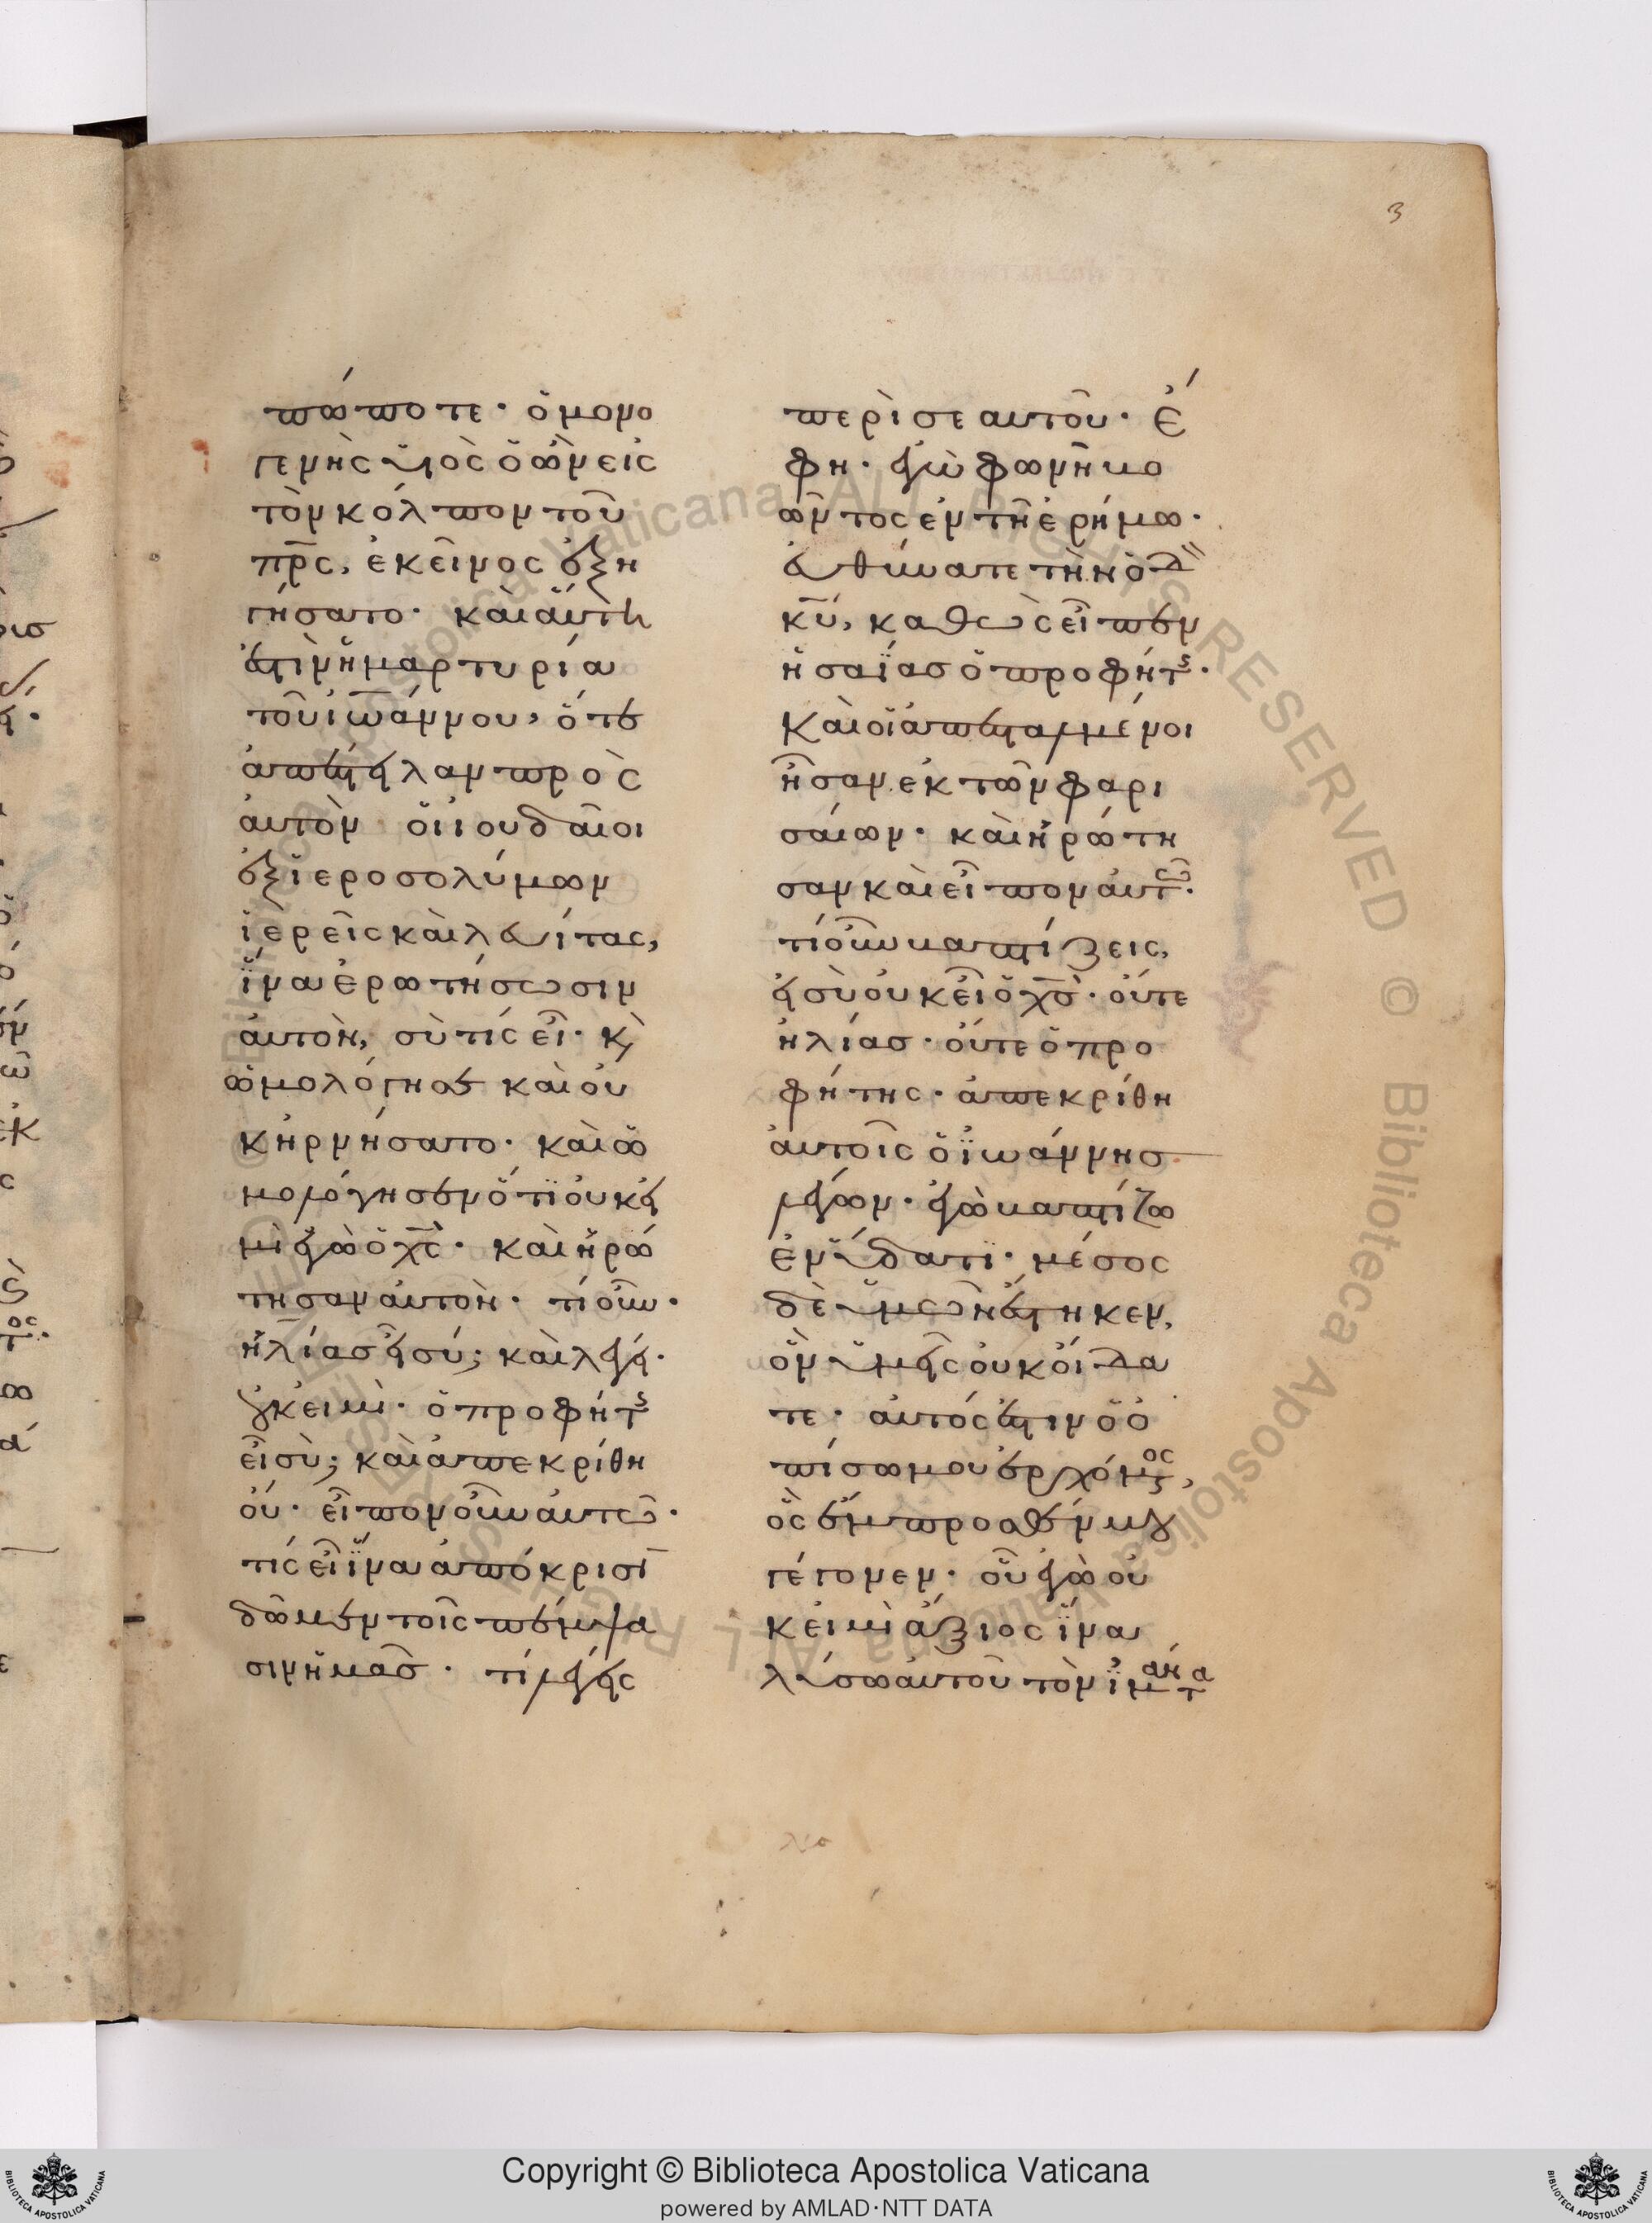 3
πώποτε· ὁ μονο
γενὴς υἱὸς ὁ ὢν εἰς
τὸν κόλπον τοῦ
πρς, ἐκεῖνος ἐξη
γήσατο· καὶ αὕτη
ἐστὶν ἡ μαρτυρία
τοῦ ἰωάννου, ὅτε
ἀπέστειλαν πρὸς
αὐτὸν οἱ ιουδαῖοι
ἐξ ἱεροσολύμων
ἱερεῖς καὶ λευίτας,
ἵνα ἐρωτήσωσιν
ἀυτὸν, σὺ τίς εἶ· κὶ
ὡμολόγησε καὶ οὐ
κ ἠρνήσατο· καὶ ὡ
μολόγησεν ὅτι οὐκ εἰ
μὶ ἐγὼ ὁ χς· καὶ ἠρώ
τησαν ἀυτὸν· τί οὖν·
ἠλίας εἶ σύ; καὶ λέγει·
οὐκ ειμὶ· ὁ προφήτης
εἶ σὺ; καὶ ἀπεκρίθη
οὐ· εἶπον οὖν ἀυτῶ·
τίς εἶ ἵνα ἀπόκρισϊ
δῶμεν τοῖς πέμψα
σιν ἡμᾶς· τί λέγεις
περὶ σεαυτοῦ· Ἔ
φη· ἐγὼ φωνὴ βο
ῶντος ἐν τῆ ἐρήμω·
ἐυθύνατε τὴν ὁδ
κυ, καθὼς εἶπεν
ἠσαΐας ὁ προφήτης·
Καὶ οἱ ἀπεσταλμένοι
ἦσαν ἐκ τῶν φαρι
σαίων· καὶ ἠρώτη
σαν καὶ εἶπον ἀυτῶ·
τί οὖν βαπτίζεις,
εἰ σὺ οὐκ εἶ ὁ χς· οὔτε
ἠλίας· οὔτε ὁ προ
φήτης· ἀπεκρίθη
ἀυτοῖς ὁ ἰωάννης
λέγων· ἐγὼ βαπτίζω
ἐν ὕδατι· μέσος
δὲ ὑμῶν ἕστηκεν,
ὃν ὑμεῖς οὐκ οἴδα
τε· ἀυτός ἐστιν ὁ ὀ
πίσω μου ἐρχόμενος,
ὃς ἔμπροσθέν μου
γέγονεν· οὗ ἐγὼ οὐ
κ ειμὶ ἄξιος ἵνα
λύσω ἀυτοῦ τὸν ἱμάντα
Copyright © Biblioteca Apostolica Vaticana
powered by AMLAD·NTT DATA